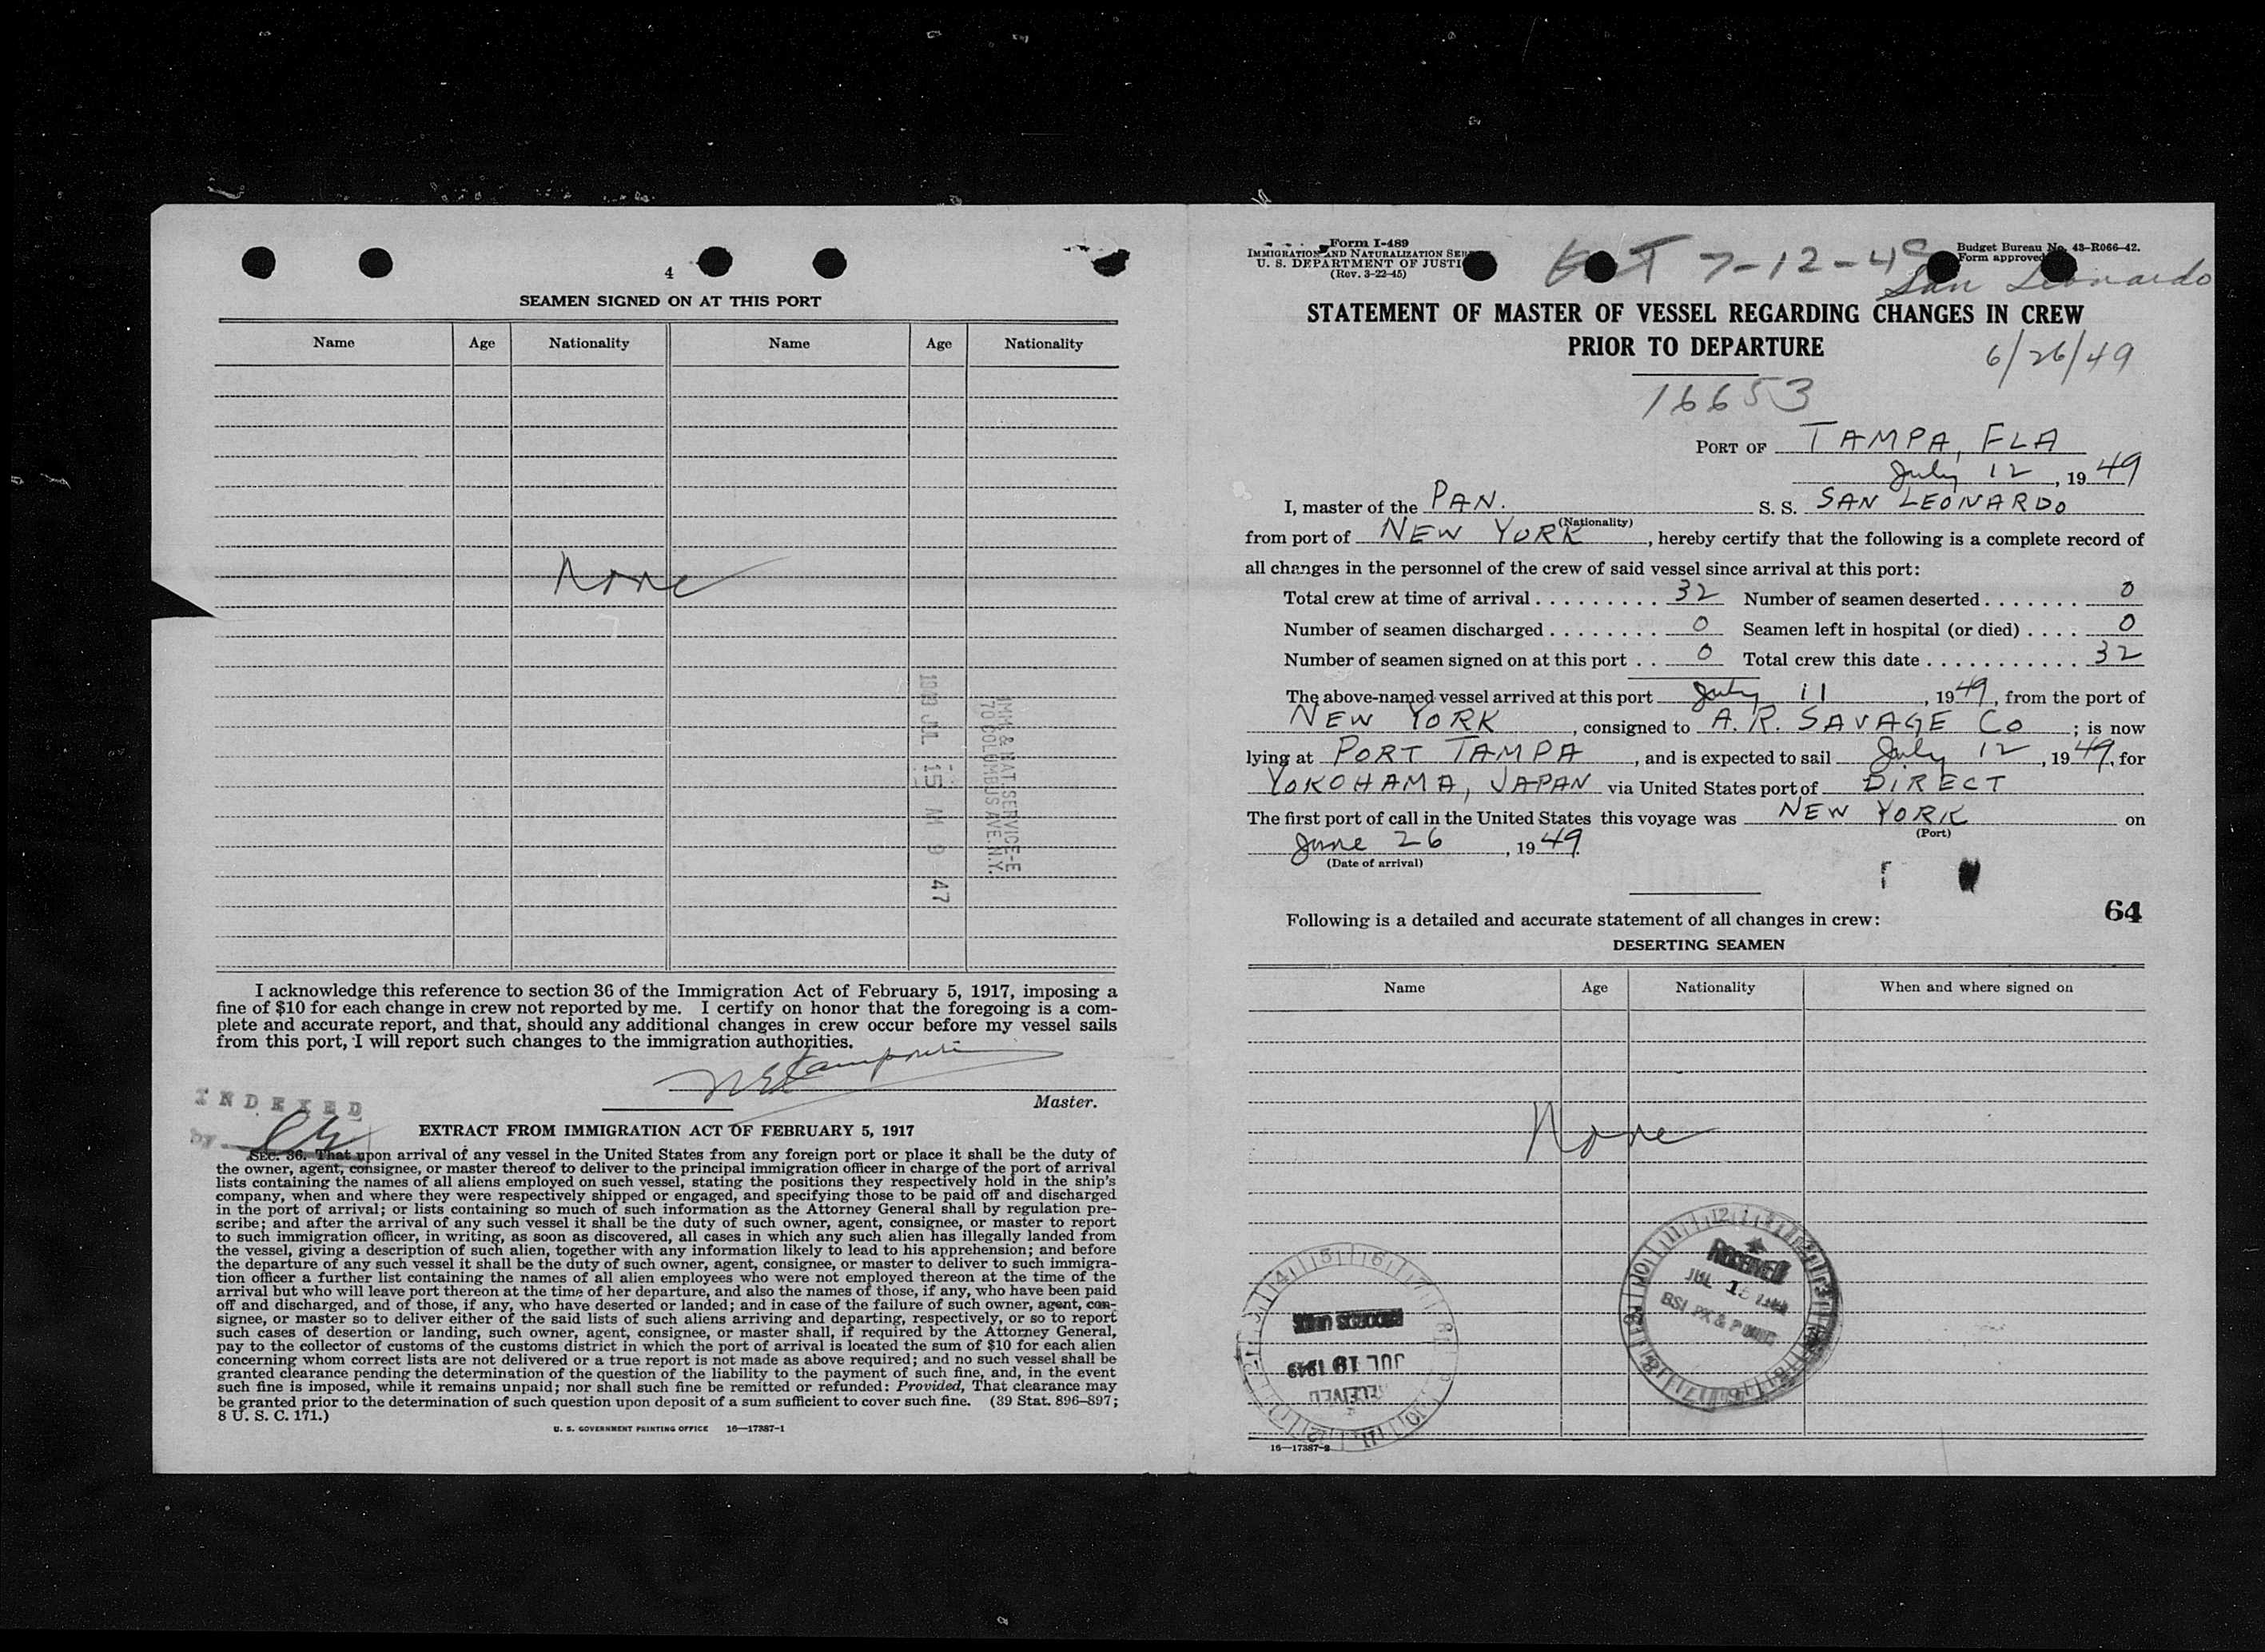 4
SEAMEN SIGNED ON AT THIS PORT
Name Age Nationality Name Age Nationality
None
15 9 47
IMM. & NAT. SERVICE-E
70 COLUMBUS AVE. N.Y.
I acknowledge this reference to section 36 of the Immigration Act of February 5, 1917, imposing a
fine of $10 for each change in crew not reported by me. I certify on honor that the foregoing is a com-
plete and accurate report, and that, should any additional changes in crew occur before my vessel sails
from this port, I will report such changes to the immigration authorities.
Master.
INDEXED
by
EXTRACT FROM IMMIGRATION ACT OF FEBRUARY 5, 1917
SEC. 36. That upon arrival of any vessel in the United States from any foreign port or place it shall be the duty of
the owner, agent, consignee, or master thereof to deliver to the principal immigration officer in charge of the port of arrival
lists containing the names of all aliens employed on such vessel, stating the positions they respectively hold in the ship's
company, when and where they were respectively shipped or engaged, and specifying those to be paid off and discharged
in the port of arrival; or lists containing so much of such information as the Attorney General shall by regulation pre-
scribe; and after the arrival of any such vessel it shall be the duty of such owner, agent, consignee, or master to report
to such immigration officer, in writing, as soon as discovered, all cases in which any such alien has illegally landed from
the vessel, giving a description of such alien, together with any information likely to lead to his apprehension; and before
the departure of any such vessel it shall be the duty of such owner, agent, consignee, or master to deliver to such immigra-
tion officer a further list containing the names of all alien employees who were not employed thereon at the time of the
arrival but who will leave port thereon at the time of her departure, and also the names of those, if any, who have been paid
off and discharged, and of those, if any, who have deserted or landed; and in case of the failure of such owner, agent, con-
signee, or master so to deliver either of the said lists of such aliens arriving and departing, respectively, or so to report
such cases of desertion or landing, such owner, agent, consignee, or master shall, if required by the Attorney General,
pay to the collector of customs of the customs district in which the port of arrival is located the sum of $10 for each alien
concerning whom correct lists are not delivered or a true report is not made as above required; and no such vessel shall be
granted clearance pending the determination of the question of the liability to the payment of such fine, and, in the event
such fine is imposed, while it remains unpaid; nor shall such fine be remitted or refunded: Provided, That clearance may
be granted prior to the determination of such question upon deposit of a sum sufficient to cover such fine. (39 Stat. 896-897;
8 U. S. C. 171.)
U. S. GOVERNMENT PRINTING OFFICE 16—17387-1
Form I-489
IMMIGRATION AND NATURALIZATION SER
U. S. DEPARTMENT OF JUSTI
(Rev. 3-22-45)
7-12-49
Budget Bureau No. 43-R066-42.
Form approved
San Leonardo
STATEMENT OF MASTER OF VESSEL REGARDING CHANGES IN CREW
PRIOR TO DEPARTURE
6/26/49
16653
PORT OF TAMPA, FLA
July 12, 1949
I, master of the PAN. S. S. SAN LEONARDO
(Nationality)
from port of NEW YORK, hereby certify that the following is a complete record of
all changes in the personnel of the crew of said vessel since arrival at this port:
Total crew at time of arrival 32 Number of seamen deserted 0
Number of seamen discharged 0 Seamen left in hospital (or died) 0
Number of seamen signed on at this port 0 Total crew this date 32
The above-named vessel arrived at this port July 11, 1949, from the port of
NEW YORK, consigned to A. R. SAVAGE CO; is now
lying at PORT TAMPA, and is expected to sail July 12, 1949, for
YOKOHAMA, JAPAN via United States port of DIRECT
The first port of call in the United States this voyage was NEW YORK on
(Port)
June 26, 1949.
(Date of arrival)
64
Following is a detailed and accurate statement of all changes in crew:
DESERTING SEAMEN
Name Age Nationality When and where signed on
None
RECEIVED
JUL
JUL 19 1949
RECEIVED
16—17387-2